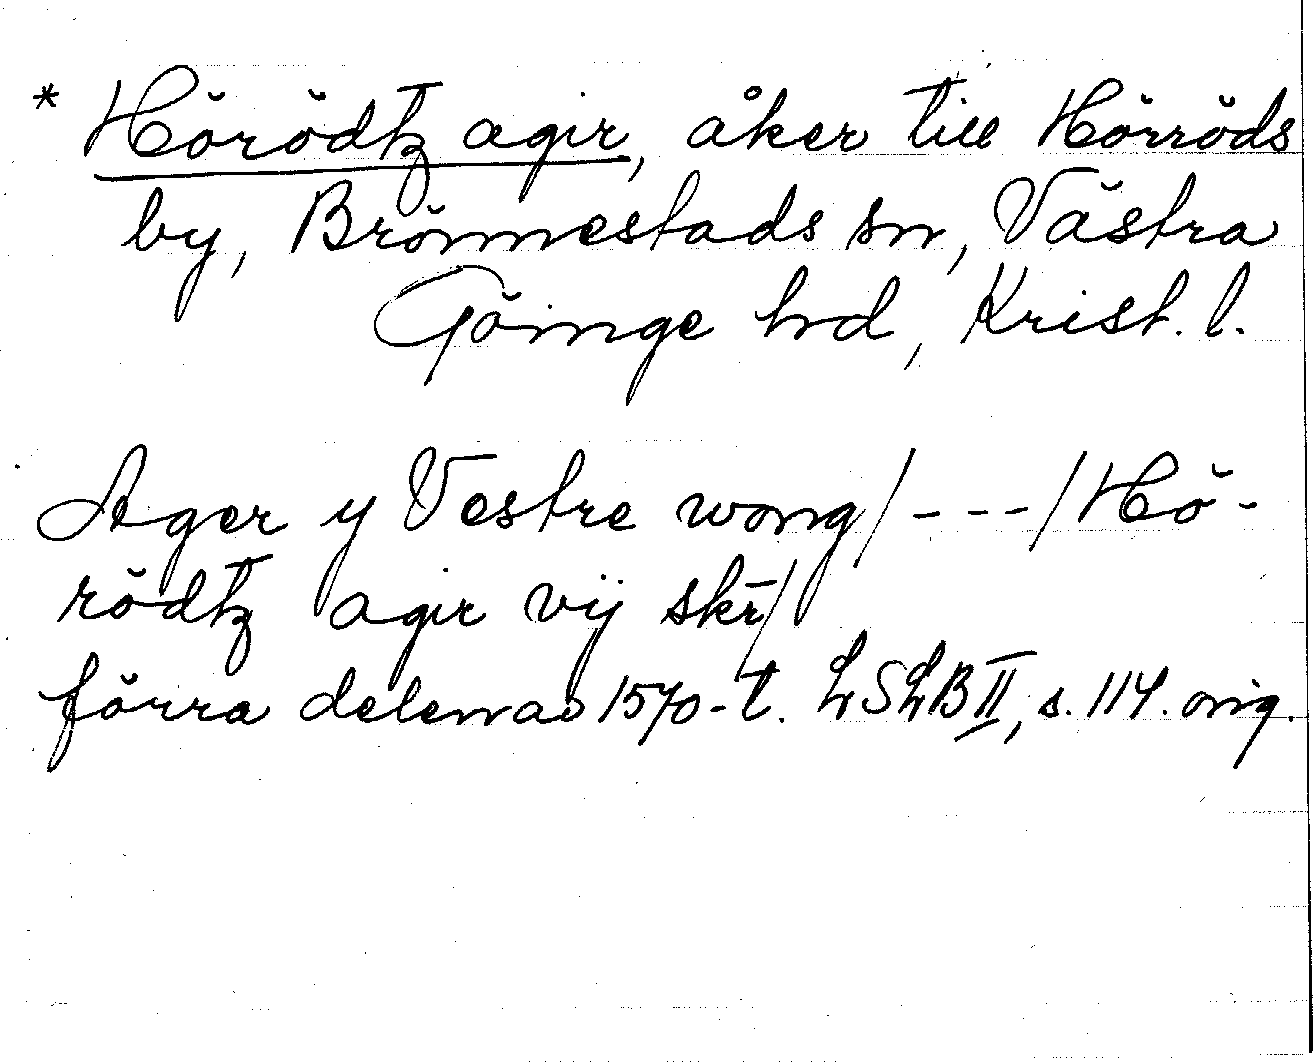 * Hörödtz agir, åker till Hörröds
by, Brönnestads sn, Västra
Göinge hd, Krist. l.
Ager y Vestre wong/---/Hö-
rödtz agir vij skr̄/
förra delen av 1570-t. LSLB II, s. 114. orig.